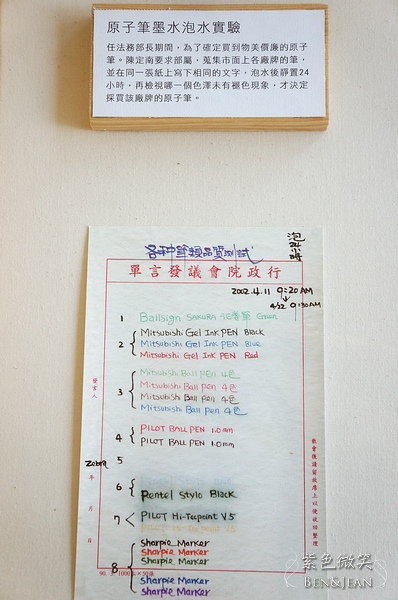 原子筆墨水泡水實驗
任法務部長期間，為了確定買到物美價廉的原子
筆。陳定南要求部屬，蒐集市面上各廠牌的筆，
並在同一張紙上寫下相同的文字，泡水後靜置24
小時，再檢視哪一個色澤未有褪色現象，才決定
採買該廠牌的原子筆。
各种筆類品質測試
泡24小時
單言發議會院政行
2002.4.11 9:20AM
4/22 9:30AM
1 Ballsign SAKURA Green
2
Mitsubishi Gel Ink PEN Black
Mitsubishi Gel Ink PEN Blue
Mitsubishi Gel Ink PEN Red
3
Mitsubishi Ball pen 4色
Mitsubishi Ball pen 4色
Mitsubishi Ball pen 4色
Mitsubishi Ball pen 4色
4
PILOT BALL PEN 1.0mm
PILOT BALL PEN 1.0mm
5
Zebra
6
Pentel Stylo Black
7
PILOT Hi-Tecpoint V5
PILOT Hi-Tecpoint V5
8
Sharpie Marker
Sharpie Marker
Sharpie Marker
Sharpie Marker
Sharpie Marker
發言人
年 月 日
敬會後請留放席上以便收回整理
紫色微笑
BEN&JEAN